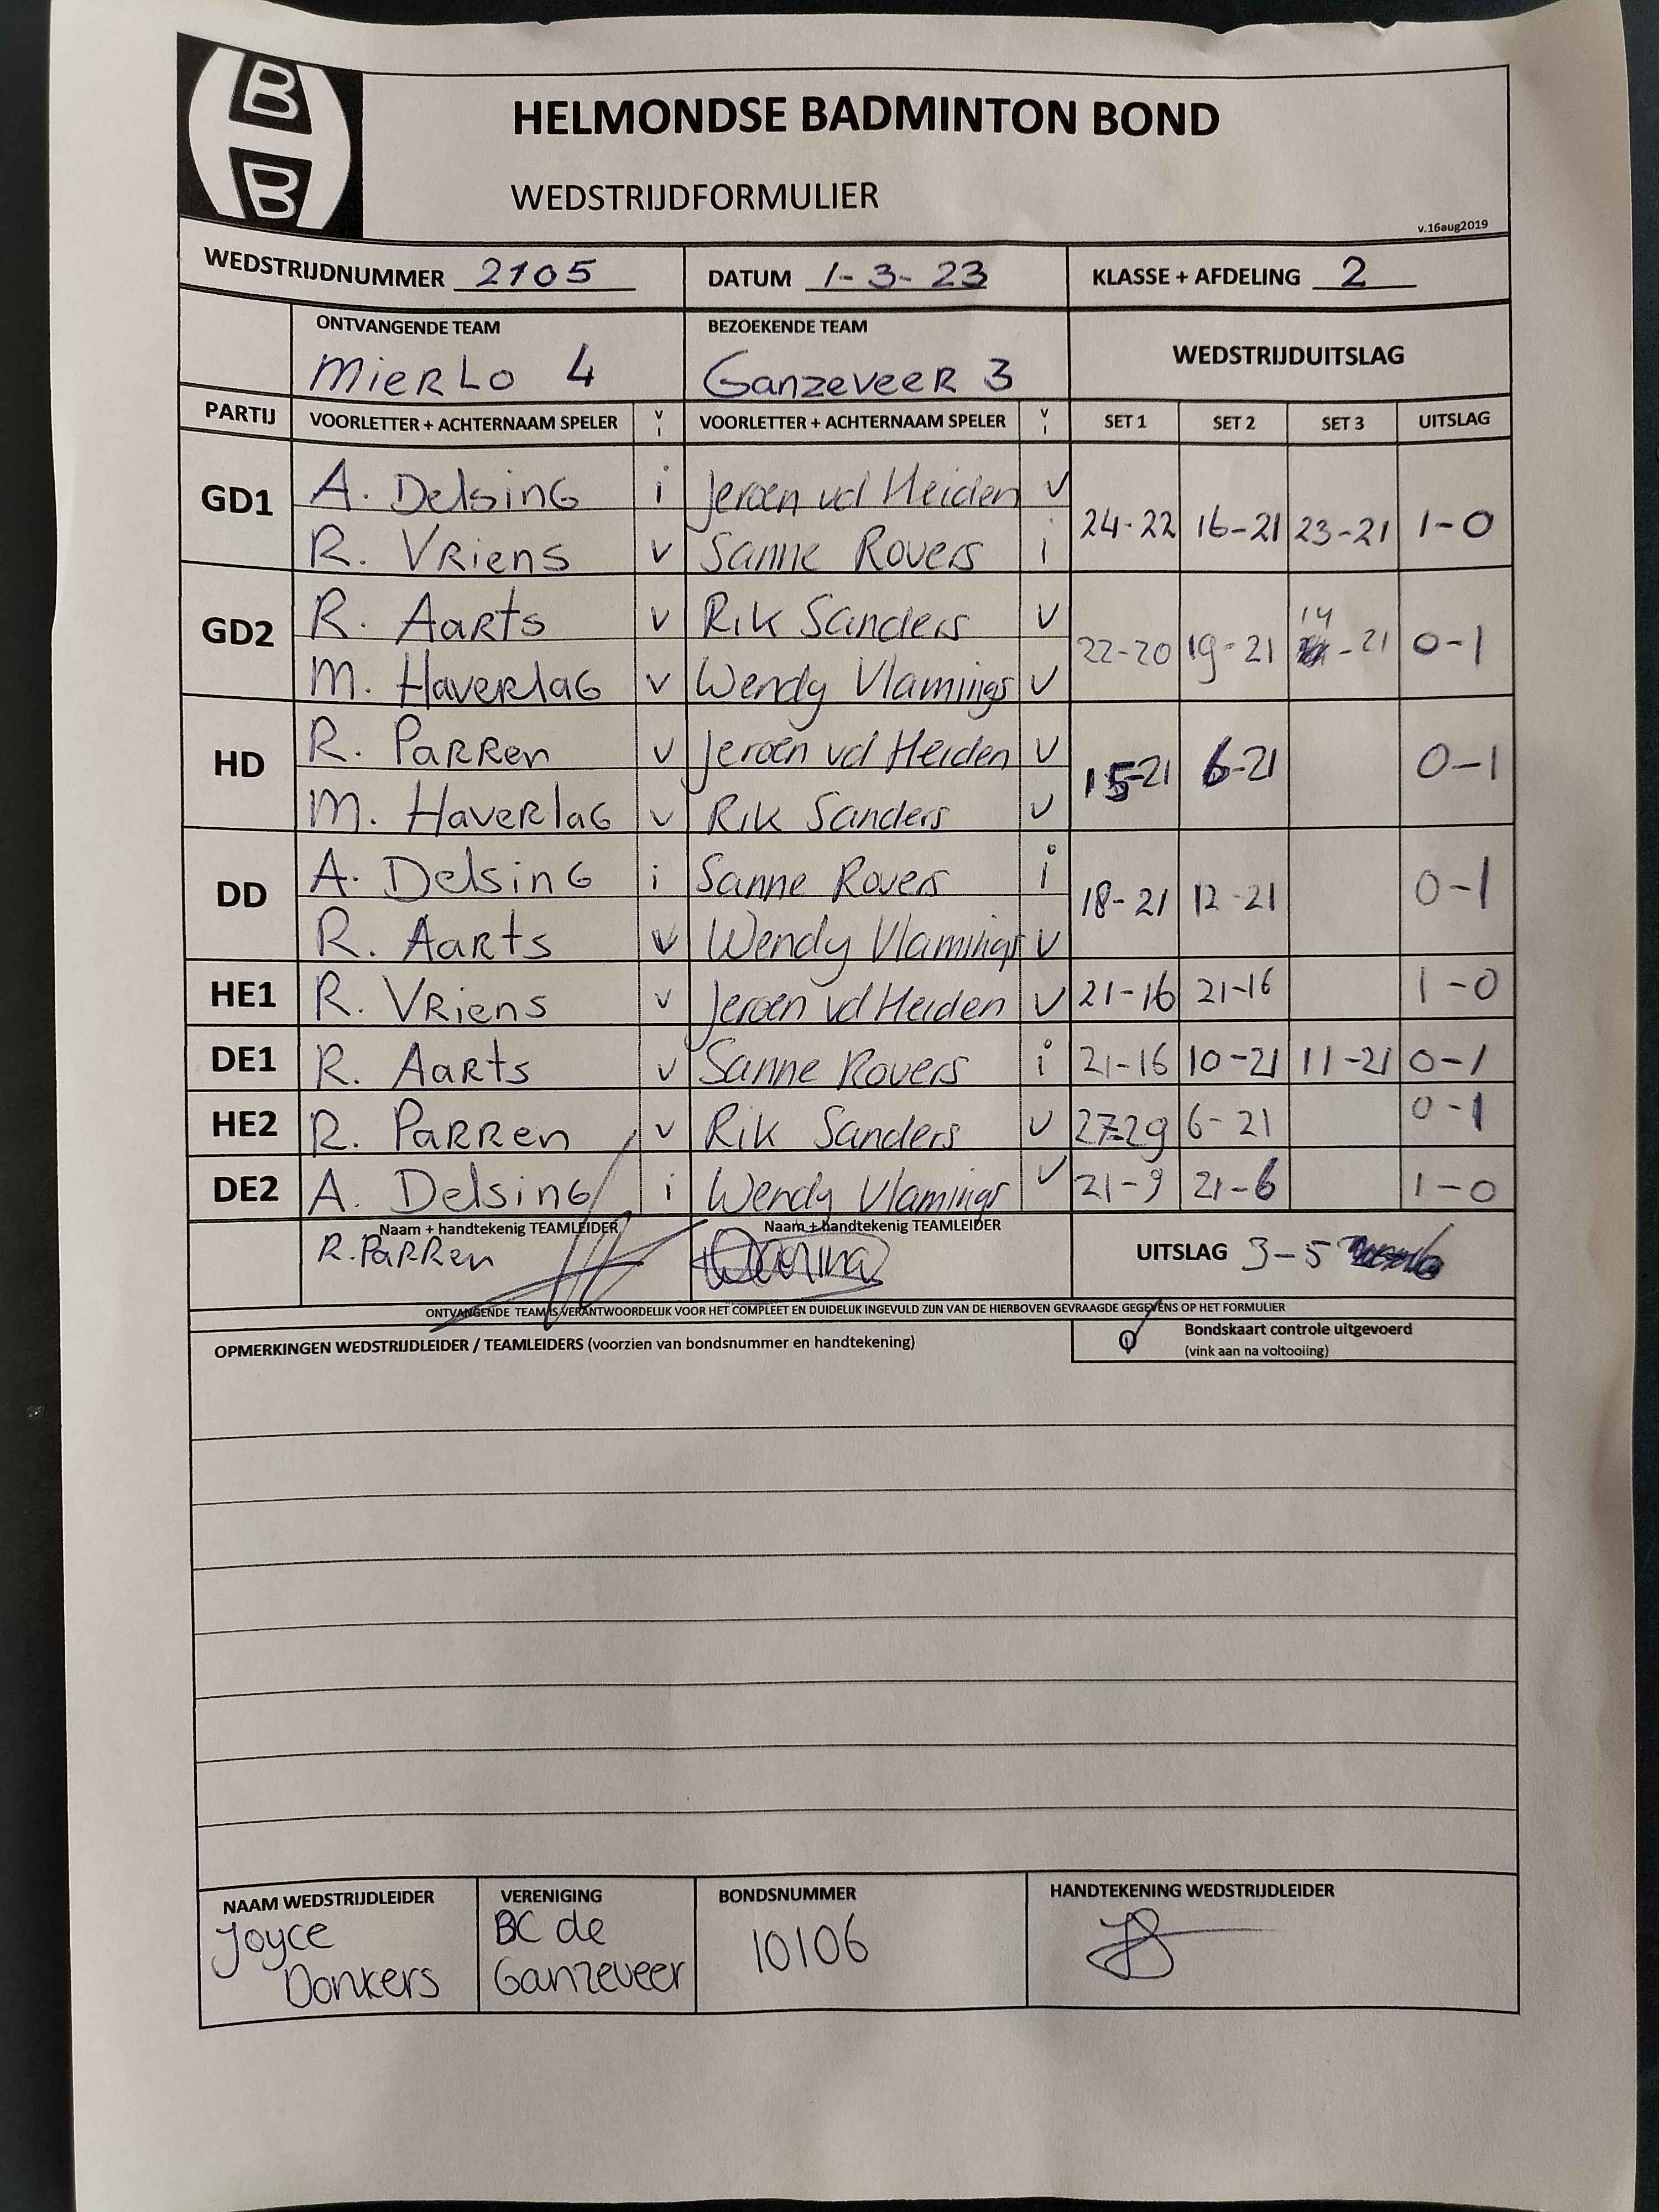 B
B
HELMONDSE BADMINTON BOND
WEDSTRIJDFORMULIER
v.16aug2019
WEDSTRIJDNUMMER 2105 DATUM 1-3-23 KLASSE + AFDELING 2
ONTVANGENDE TEAM BEZOEKENDE TEAM
MieRLo 4 GanzeveeR 3 WEDSTRIJDUITSLAG
PARTIJ VOORLETTER + ACHTERNAAM SPELER V I VOORLETTER + ACHTERNAAM SPELER V I SET 1 SET 2 SET 3 UITSLAG
GD1 A. DelsinG i Jeroen vd Heiden v
R. VRiens v Sanne Rovers i 24-22 16-21 23-21 1-0
GD2 R. AaRts v Rik Sanders v
M. HaveRlaG v Wendy Vlamings v 22-20 19-21 14-21 0-1
HD R. PaRRen v Jeroen vd Heiden v
M. HaveRlaG v Rik Sanders v 15-21 6-21 0-1
DD A. DelsinG i Sanne Rovers i
R. AaRts v Wendy Vlamings v 18-21 12-21 0-1
HE1 R. VRiens v Jeroen vd Heiden v 21-16 21-16 1-0
DE1 R. AaRts v Sanne Rovers i 21-16 10-21 11-21 0-1
HE2 R. PaRRen v Rik Sanders v 27-29 6-21 0-1
DE2 A. DelsinG i Wendy Vlamings v 21-9 21-6 1-0
Naam + handtekenig TEAMLEIDER Naam + handtekenig TEAMLEIDER
R. PaRRen UITSLAG 3-5
ONTVANGENDE TEAM IS VERANTWOORDELIJK VOOR HET COMPLEET EN DUIDELIJK INGEVULD ZIJN VAN DE HIERBOVEN GEVRAAGDE GEGEVENS OP HET FORMULIER
OPMERKINGEN WEDSTRIJDLEIDER / TEAMLEIDERS (voorzien van bondsnummer en handtekening)
Bondskaart controle uitgevoerd
(vink aan na voltooiing)
NAAM WEDSTRIJDLEIDER VERENIGING BONDSNUMMER HANDTEKENING WEDSTRIJDLEIDER
Joyce BC de 10106
Donkers Ganzeveer